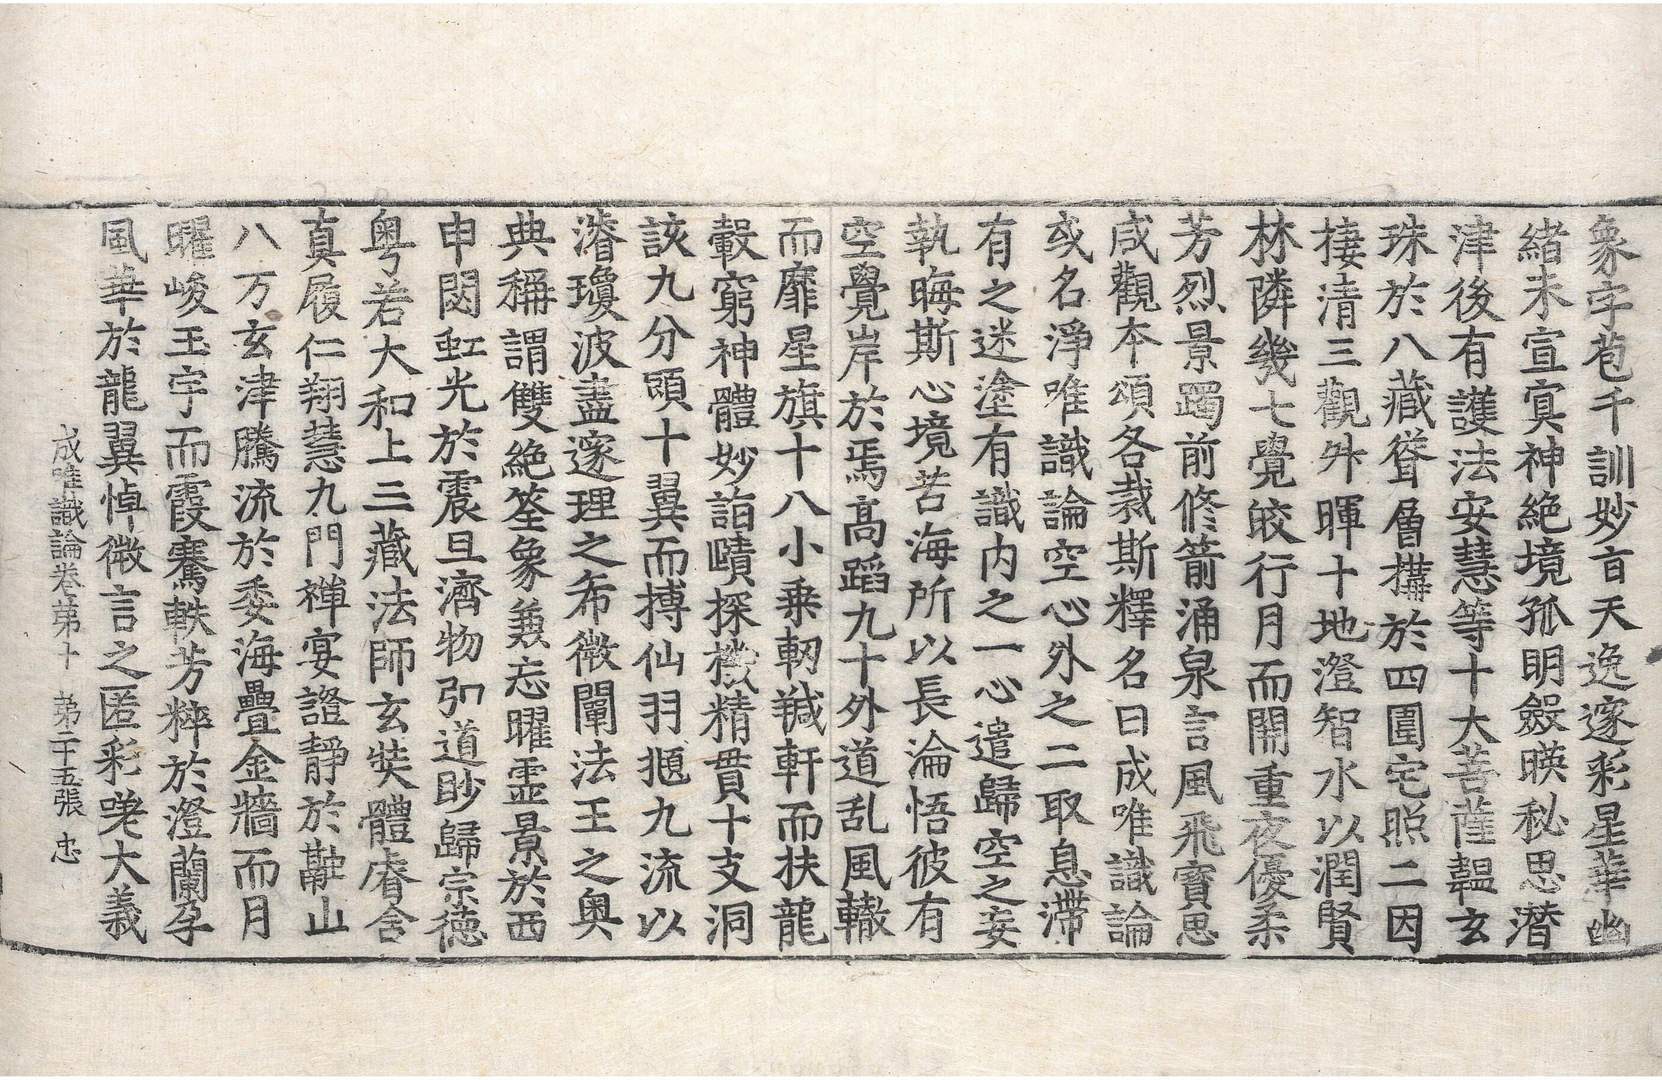 象字苞千訓妙旨天逸邃彩星華幽
緒未宣冥神絶境孤明斂暎秘思潜
津後有護法安慧等十大菩薩韞玄
珠於八藏聳層搆於四圍宅照二因
棲清三觀升暉十地澄智水以潤賢
林隣幾七覺皎行月而開重夜優柔
芳烈景躅前修箭涌泉言風飛寶思
咸觀本頌各裁斯釋名曰成唯識論
或名淨唯識論空心外之二取息滯
有之迷塗有識内之一心遣歸空之妄
執晦斯心境苦海所以長淪悟彼有
空覺岸於焉高蹈九十外道乱風轍
而靡星旗十八小乗軔羬軒而扶龍
轂窮神體妙詣賾探機精貫十支洞
該九分顗十翼而摶仙羽頫九流以
濬瓊波盡邃理之希微闡法王之奥
典稱謂雙絶筌象兼忘曜靈景於西
申閟虹光於震旦濟物弘道眇歸宗德
粤若大和上三藏法師玄奘體睿含
真履仁翔慧九門禪宴證靜於融山
八万玄津騰流於委海疊金牆而月
曜峻玉宇而霞騫軼芳粹於澄蘭孕
風華於龍翼悼微言之匿彩嗟大義
成唯識論卷第十　第二十五張　忠